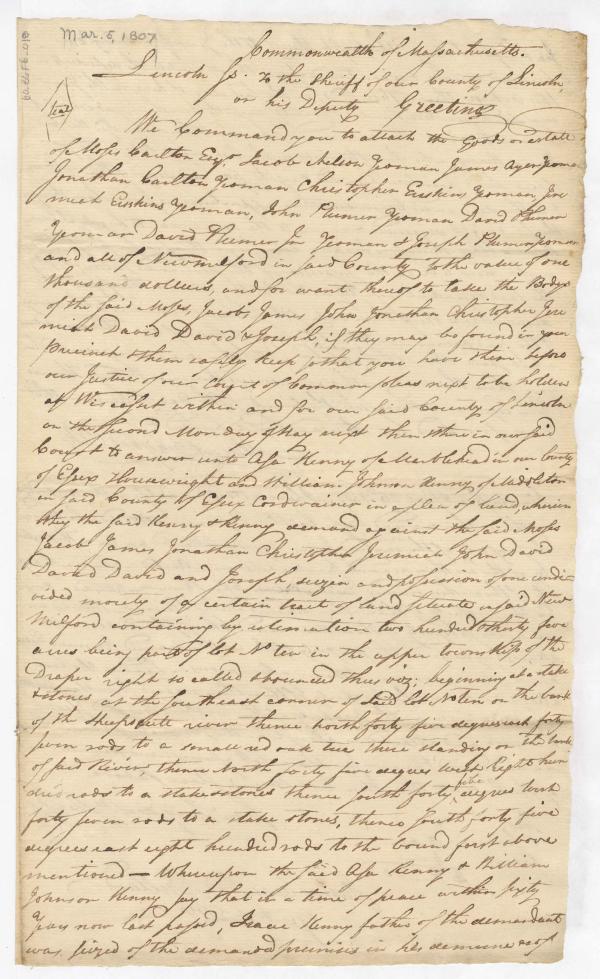 Mar. 5, 1807
Commonwealth of Massachusetts.
Lincoln Ss. To the Sheriff of our County of Lincoln,
or his Deputy Greeting
Seal
We Command you to attach the Goods or estate
of Moses Carlton Esqr. Jacob Nelson Yeoman James Ayer Yeoman
Jonathan Carlton Yeoman Christopher Erskins Yeoman, Jere
miah Erskins Yeoman, John Plumer Yeoman David Plumer
Yeoman David Plumer Jr Yeoman & Joseph Plumer Yeoman
and all of Newmilford in said County to the value of one
thousand dollars, and for want thereof to take the Bodys
of the said Moses, Jacob, James John Jonathan Christopher Jere
miah David David & Joseph, if they may be found in your
Precinct & them safely keep so that you have them before
our Justices of our Court of Common pleas next to be holden
at Wiscasset within and for our said County of Lincoln
on the second Monday of May next then & there in our said
Court to answer unto Asa Kenny of Marblehead in our County
of Essex Housewright and William Johnson Kenny of Middleton
in said County of Essex Cordwainer in a plea of land, wherein
they the said Kenny & Kenny demand against the said Moses
Jacob James Jonathan Christopher Jeremiah John David
David David and Joseph, seizin and possession of one undi
vided moiety of a certain tract of land situate in said New
Milford containing by estimation two hundred thirty five
acres being part of lot No ten in the upper township of the
Draper right so called & bounded thus viz; beginning at a stake
& stones at the Southeast corner of said lot No ten on the bank
of the Sheepscute river thence north forty five degrees east forty
seven rods to a small red oak tree there standing on the bank
of said River, thence North forty five degrees West Eight hun
dred rods to a stake & stones thence South forty five degrees West
forty seven rods to a stake stones, thence South forty five
degrees east eight hundred rods to the bound first above
mentioned — Whereupon the said Asa Kenny & William
Johnson Kenny say that in a time of peace within sixty
Years now last passed, Isaac Kenny father of the demandants
was seized of the demanded premises in his demesne as of